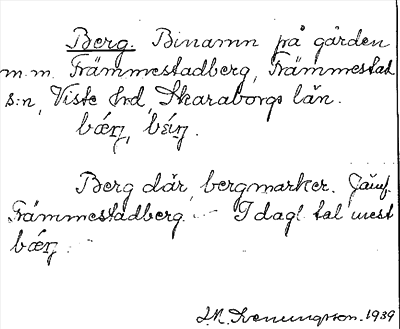 Berg. Binamn på gården
m.m. Främmestadberg, Främmestad
s:n, Viste hrd, Skaraborgs län.
Berg där, bergmarker. Jämf.
Främmestadberg. — I dagl. tal mest
1939